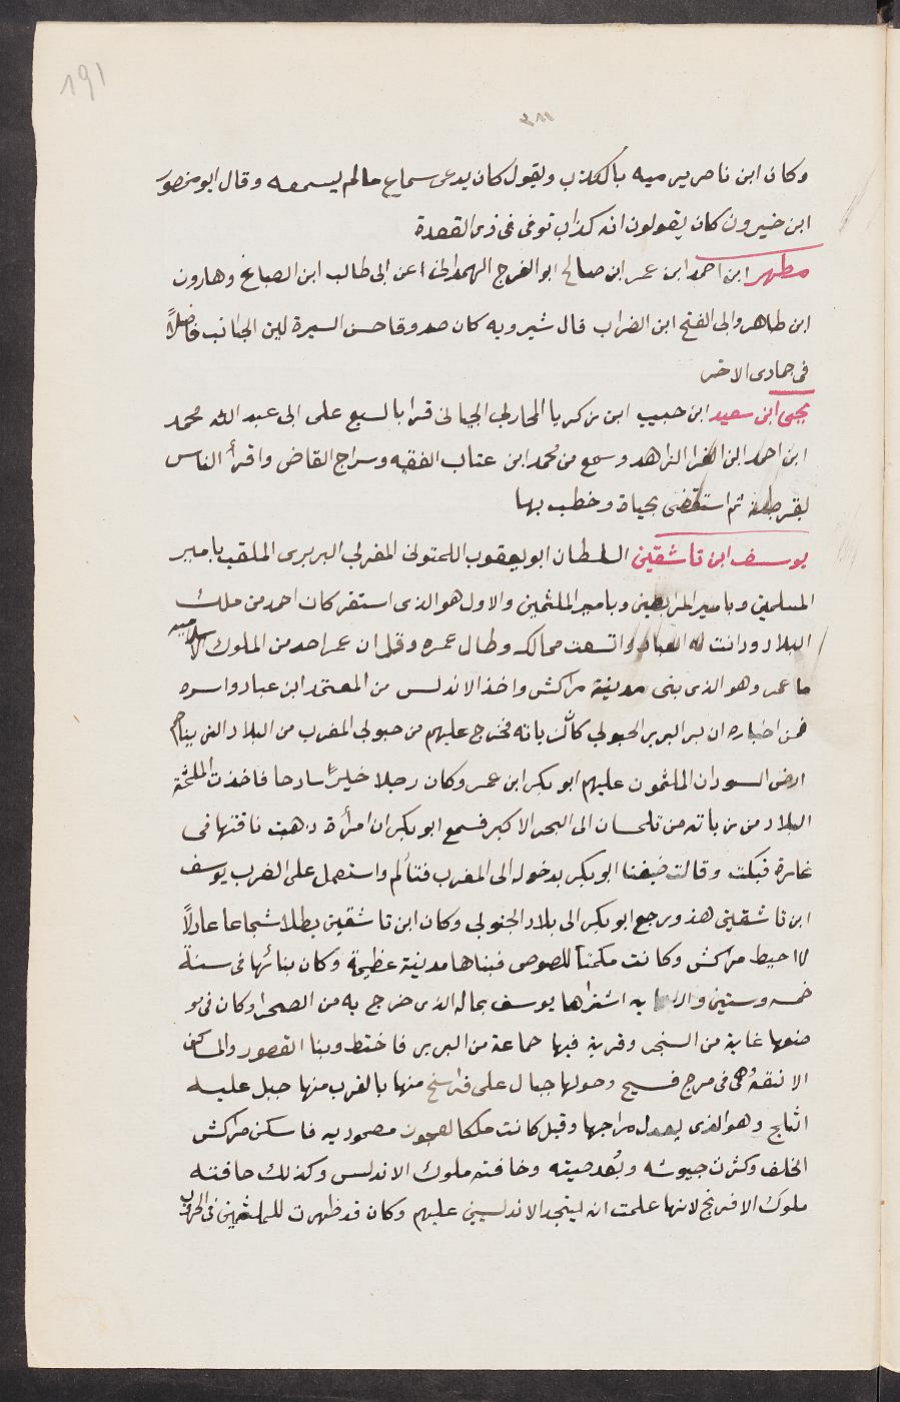 191
وكان ابن ناصر يرميه بالكذب ويقول كان يدعى سماع مالم يسمعه وقال ابو منصور
ابن خيرون كان يقولون انه كذاب توفى فى ذى القعدة
مطهر ابن احمد ابن عمر ابن صالح ابو الفرج الهمدانى عن ابى طالب ابن الصباغ وهارون
ابن طاهر وابى الفتح ابن الضراب قال شيرويه كان صدوقا حسن السيرة لين الجانب فاضلاً
فى جمادى الاخر
يحيى ابن سعيد ابن حبيب ابن زكريا المحاربى الجيانى قرا بالسبع على ابى عبد الله محمد
ابن احمد ابن الفرا الزاهد وسمع من محمد ابن عتاب الفقيه وسراج القاض واقرأ الناس
بقرطبة ثم استقضى بجيان وخطب بها
يوسف ابن تاشقين السلطان ابو يعقوب اللمتونى المغربى البربرى الملقب بامير
المسلمين وبامير المرابطين وبامير الملثمين والاول هو الذى استقر كان احد من ملك
البلاد ودانت له العباد واتسعت ممالكه وطال عمره وقل ان عمر احد من الملوك الاسلاميه
ما عمر وهو الذى بنى مدينة مراكش واخذ الاندلس من المعتمد ابن عباد واسره
فمن اخباره ان بر البربر الجنوبي كان لزناته فخرج عليهم من جنوبى المغرب من البلاد التى يتاخم
ارض السودان الملثمون عليهم ابو بكر ابن عمر وكان رجلا خيرًا سادحا فاخذت الملثمة
البلاد من زناته من تلمسان الى البحر الاكبر فسمع ابو بكر ان امرأة ذهبت ناقتها فى
غارة فبكت وقالت ضيعنا ابو بكر بدخوله الى المغرب فتألم واستعمل على الغرب يوسف
ابن تاشقين هذ ورجع ابو بكر الى بلاد الجنوبي وكان ابن تاشقين بطلا شجاعا عادلًا
احيط مراكش وكانت مكمنا للصوص فبناها مدينة عظيمة وكان بنائها فى سنة
خمسه وستين واربعمايه اشتراها يوسف بماله الذى خرج به من الصحرا وكان فى
صنوها غابة من الشجر وقرية فيها جماعة من البربر فاختط وبنا القصور والمساكن
الانقه وهى فى مرج فسيح وحولها جبال على فراسخ منها بالقرب منها جبل عليه
الثلج وهو الذى يعدل مزاجها وقيل كانت ملكا لعجوز مصموديه فاسكن مراكش
الخلف وكثرت جيوشه وبُعد صيته وخافته ملوك الاندلس وكذلك خافته
ملوك الافرنج لانها علمت انه لينجد الاندلسيين عليهم وكان قد ظهرت للملثمين فى الحروب